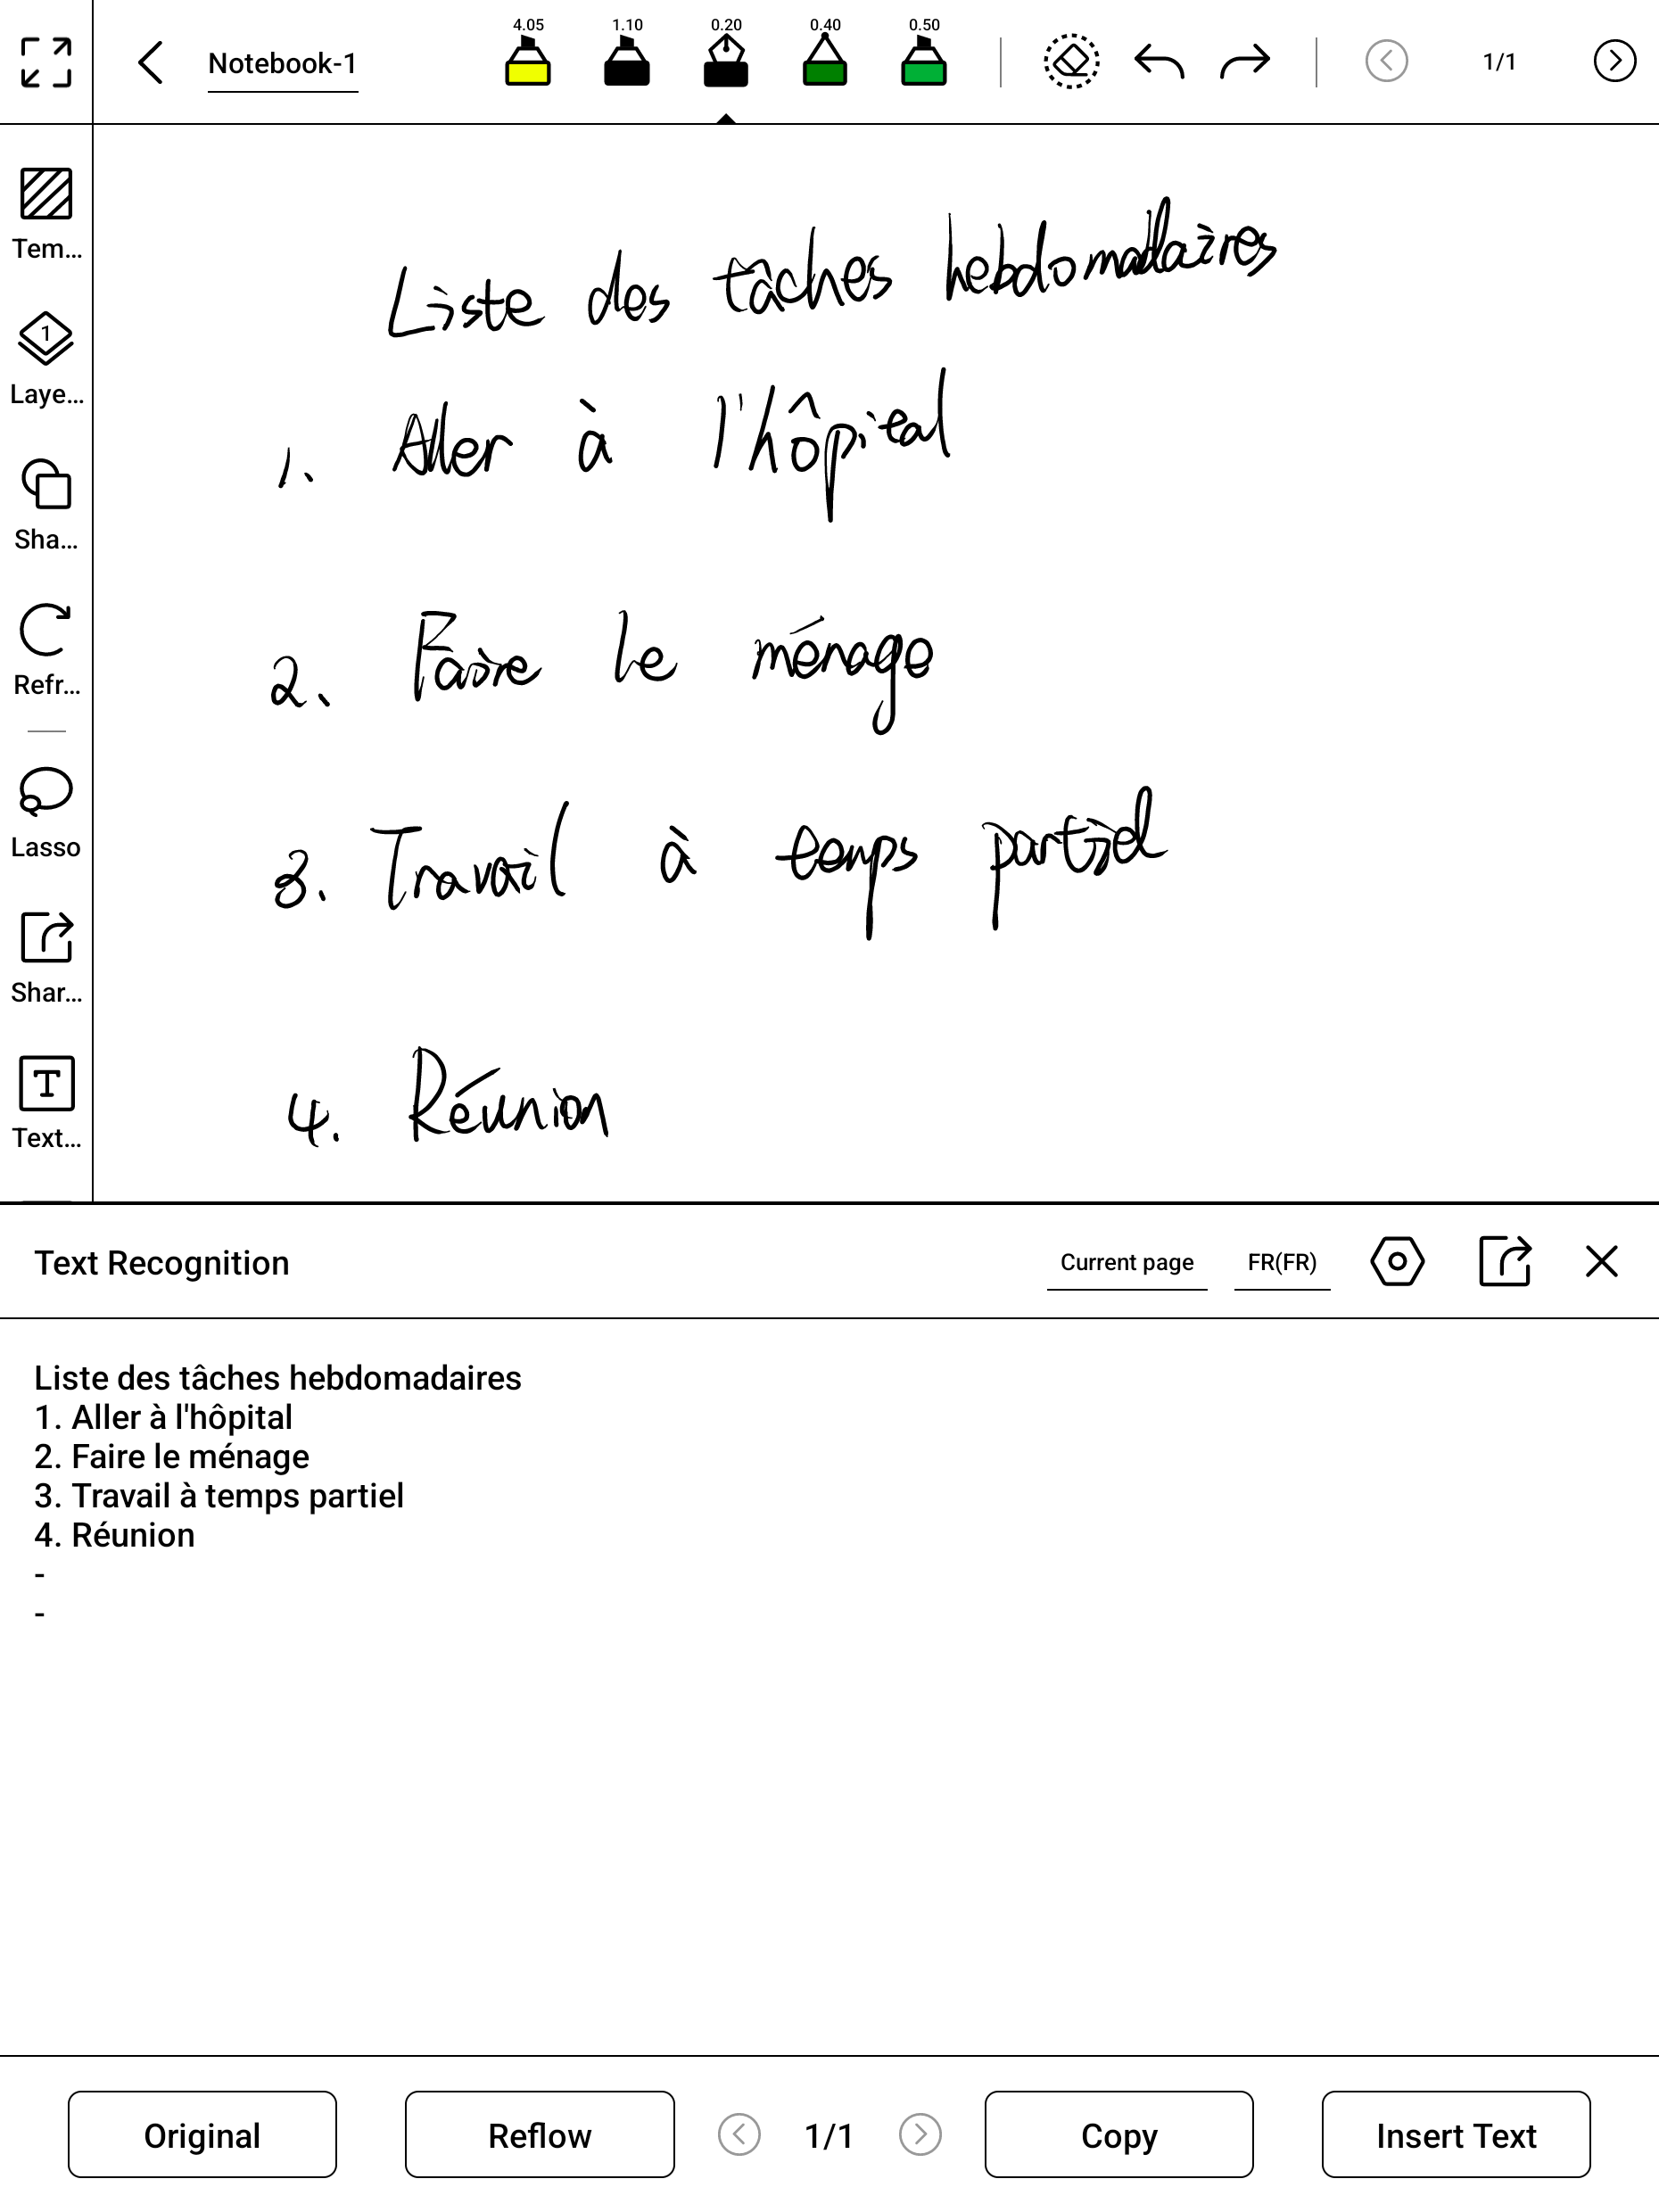 4.05 1.10 0.20 0.40 0.50
Notebook-1
1/1
Tem...
1
Laye...
Sha...
Refr...
Lasso
Shar...
T
Text...
Liste des tâches hebdomadaires
1. Aller à l'hôpital
2. Faire le ménage
3. Travail à temps partiel
4. Réunion
Text Recognition
Current page
FR(FR)
Liste des tâches hebdomadaires
1. Aller à l'hôpital
2. Faire le ménage
3. Travail à temps partiel
4. Réunion
-
-
Original
Reflow
1/1
Copy
Insert Text